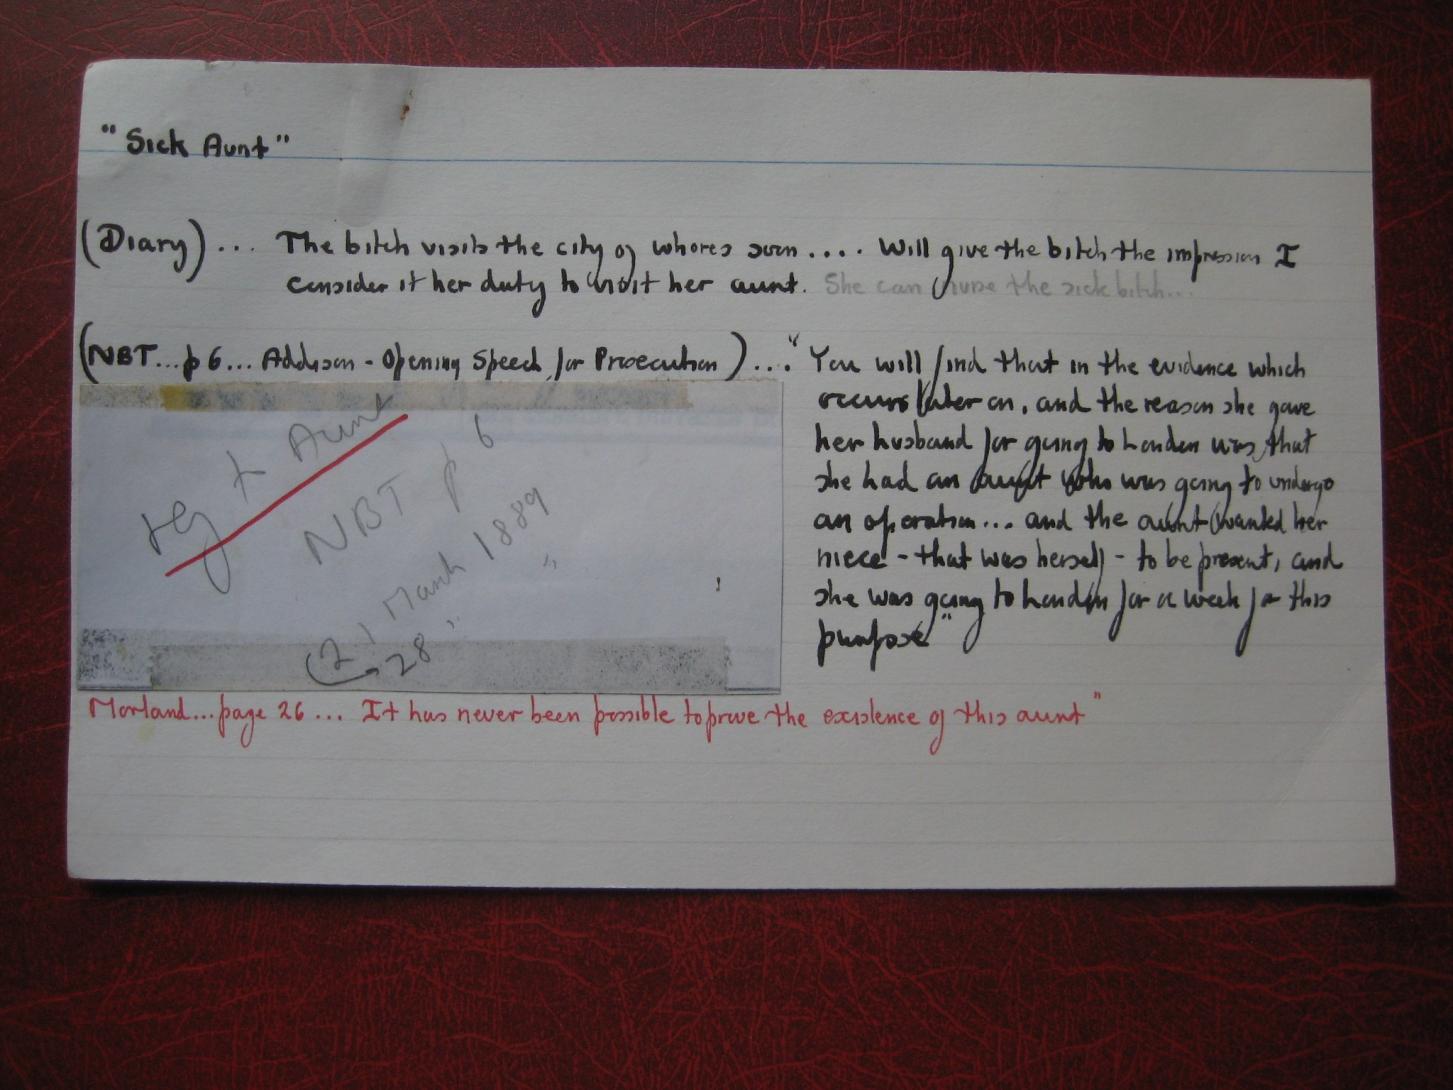 "Sick Aunt"
(Diary)... The bitch visits the city of whores soon.... Will give the bitch the impression I
consider it her duty to visit her aunt. She can nurse the sick bitch...
(NBT...p6... Addison - Opening Speech for Prosecution)...."You will find that in the evidence which
occurs later on, and the reason she gave
her husband for going to London was, that
she had an aunt who was going to undergo
an operation... and the aunt wanted her
niece - that was herself - to be present, and
she was going to London for a week for this
purpose"
& Aunt
NBT p 6
(21 March 1889
28 " "
Morland...page 26... It has never been possible to prove the existence of this aunt"